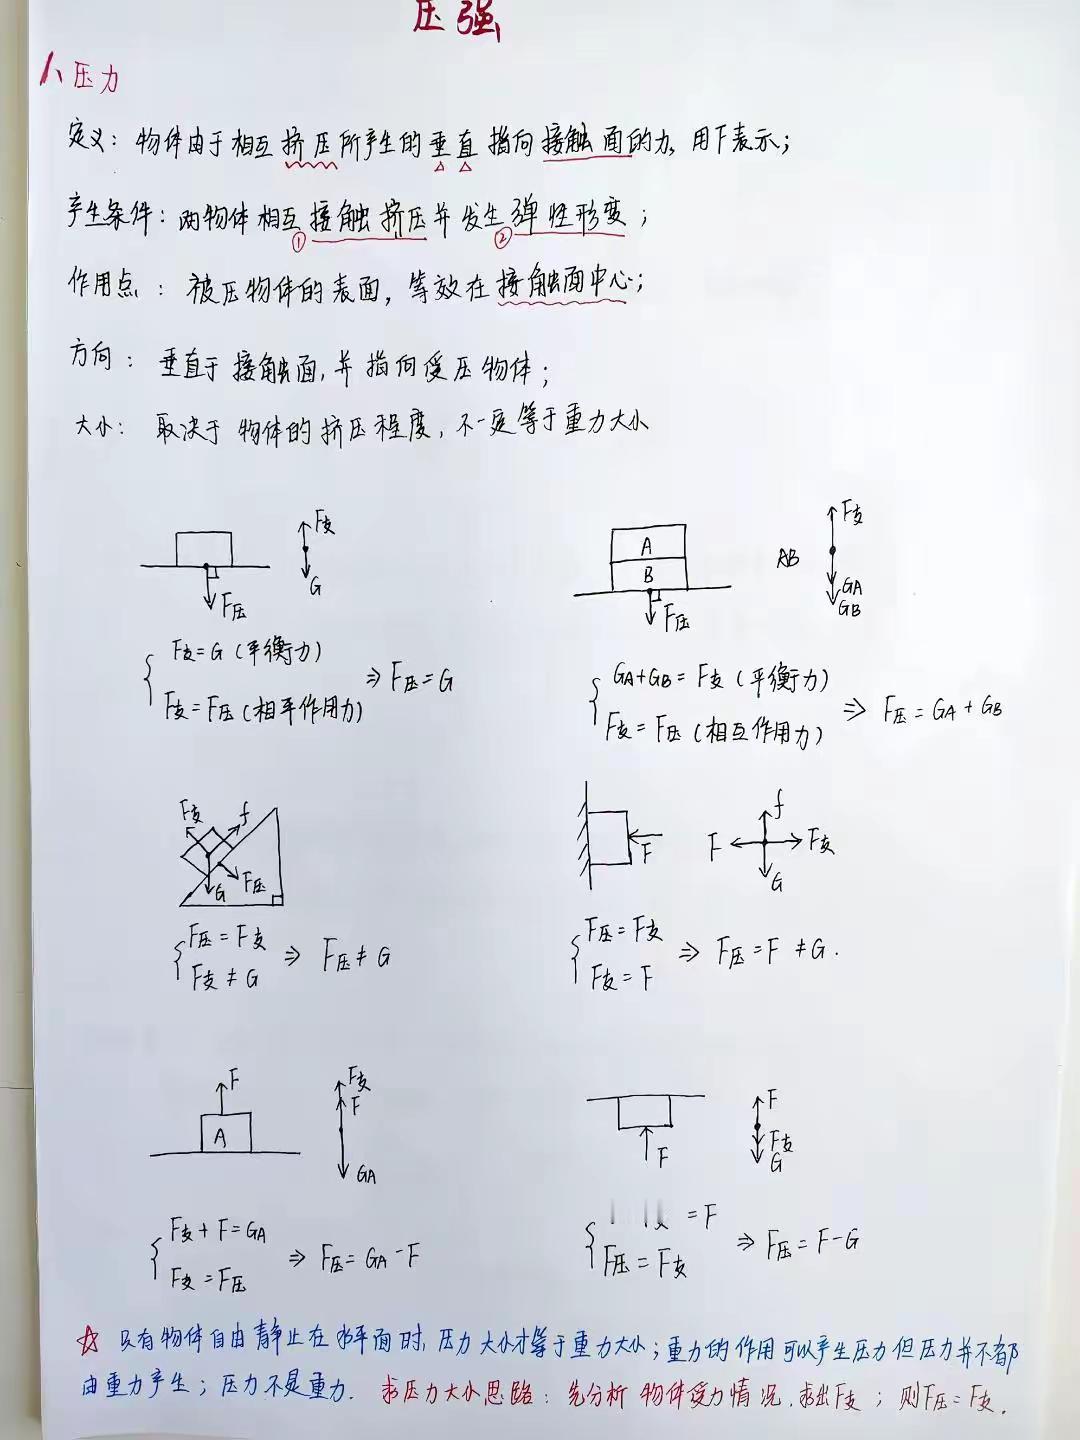 压强
1、压力
定义：物体由于相互挤压所产生的垂直指向接触面的力，用F表示；
产生条件：两物体相互接触挤压并发生弹性形变；
① ②
作用点：被压物体的表面，等效在接触面中心；
方向：垂直于接触面，并指向受压物体；
大小：取决于物体的挤压程度，不一定等于重力大小
F支
G
F压
F支=G（平衡力）
F支=F压（相平作用力）
⇒F压=G
A
B
F压
AB
F支
GA
GB
GA+GB=F支（平衡力）
F支=F压（相互作用力）
⇒F压=GA+GB
F支
f
G
F压
F压=F支
F支≠G
⇒F压≠G
F
f
F
F支
G
F压=F支
F支=F
⇒F压=F≠G.
F
A
F支
F
GA
F支+F=GA
F支=F压
⇒F压=GA-F
F
F
F支
G
=F
F压=F支
⇒F压=F-G
☆只有物体自由静止在水平面时，压力大小才等于重力大小；重力的作用可以产生压力但压力并不都
由重力产生；压力不是重力. 求压力大小思路：先分析物体受力情况，求出F支；则F压=F支.